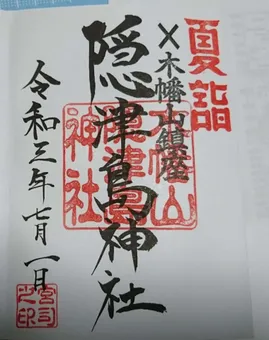 夏詣
×木幡山鎮座
隠津島神社
木幡山
隠津島
神社
令和三年七月一日
宮司
之印